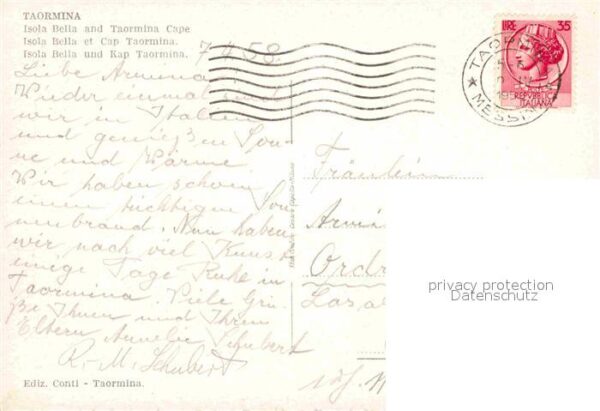 TAORMINA
Isola Bella and Taormina Cape
Isola Bella et Cap Taormina.
Isola Bella und Kap Taormina.
7 4 58.
Liebe Armina
Wieder einmal sind
wir in Italien
und genießen Son-
ne und Wärme.
Wir haben schon
einen richtigen Son-
nenbrand. Nun haben
wir nach viel Kunst
einige Tage Ruhe in
Taormina. Viele Grü-
ße Ihnen und Ihren
Eltern Annelie Schubert
R.-M. Schubert
Ediz. Conti - Taormina.
LIRE 35
REPUBBLICA
ITALIANA
TAORMINA
MESSINA
Fräulein
Armi
Ordr
privacy protection
Datenschutz